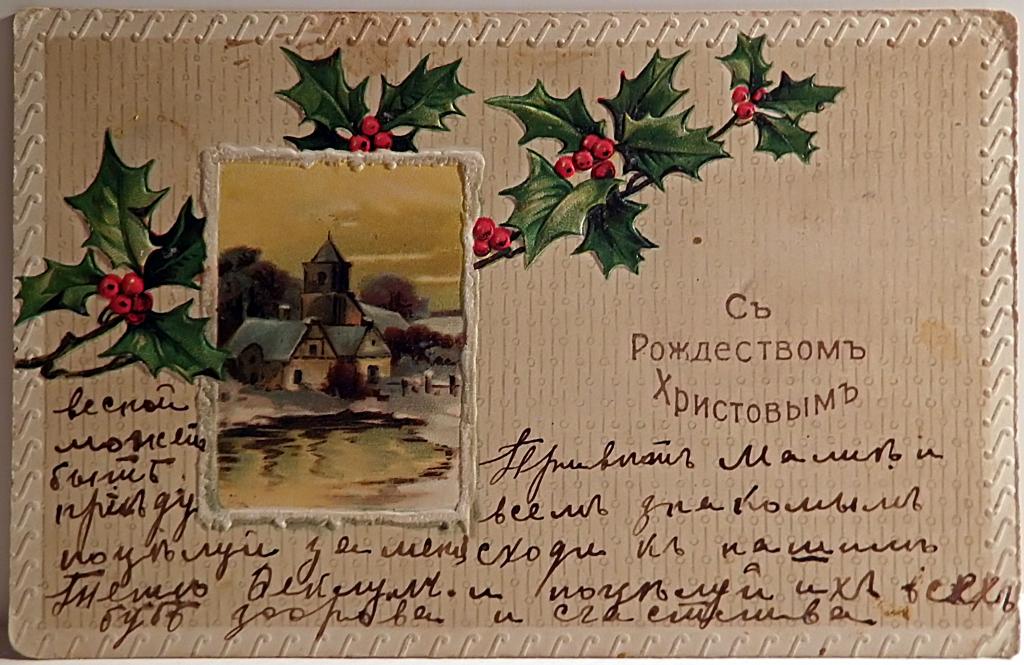 Съ
Рождествомъ
Христовымъ
весной
можетъ
быть
пріѣду
Привѣтъ Маликѣ и
всемъ знакомымъ
поцѣлуй за меня сходи къ нашимъ
Тетѣ и поцѣлуй ихъ всехъ
будь здорова и счастлива